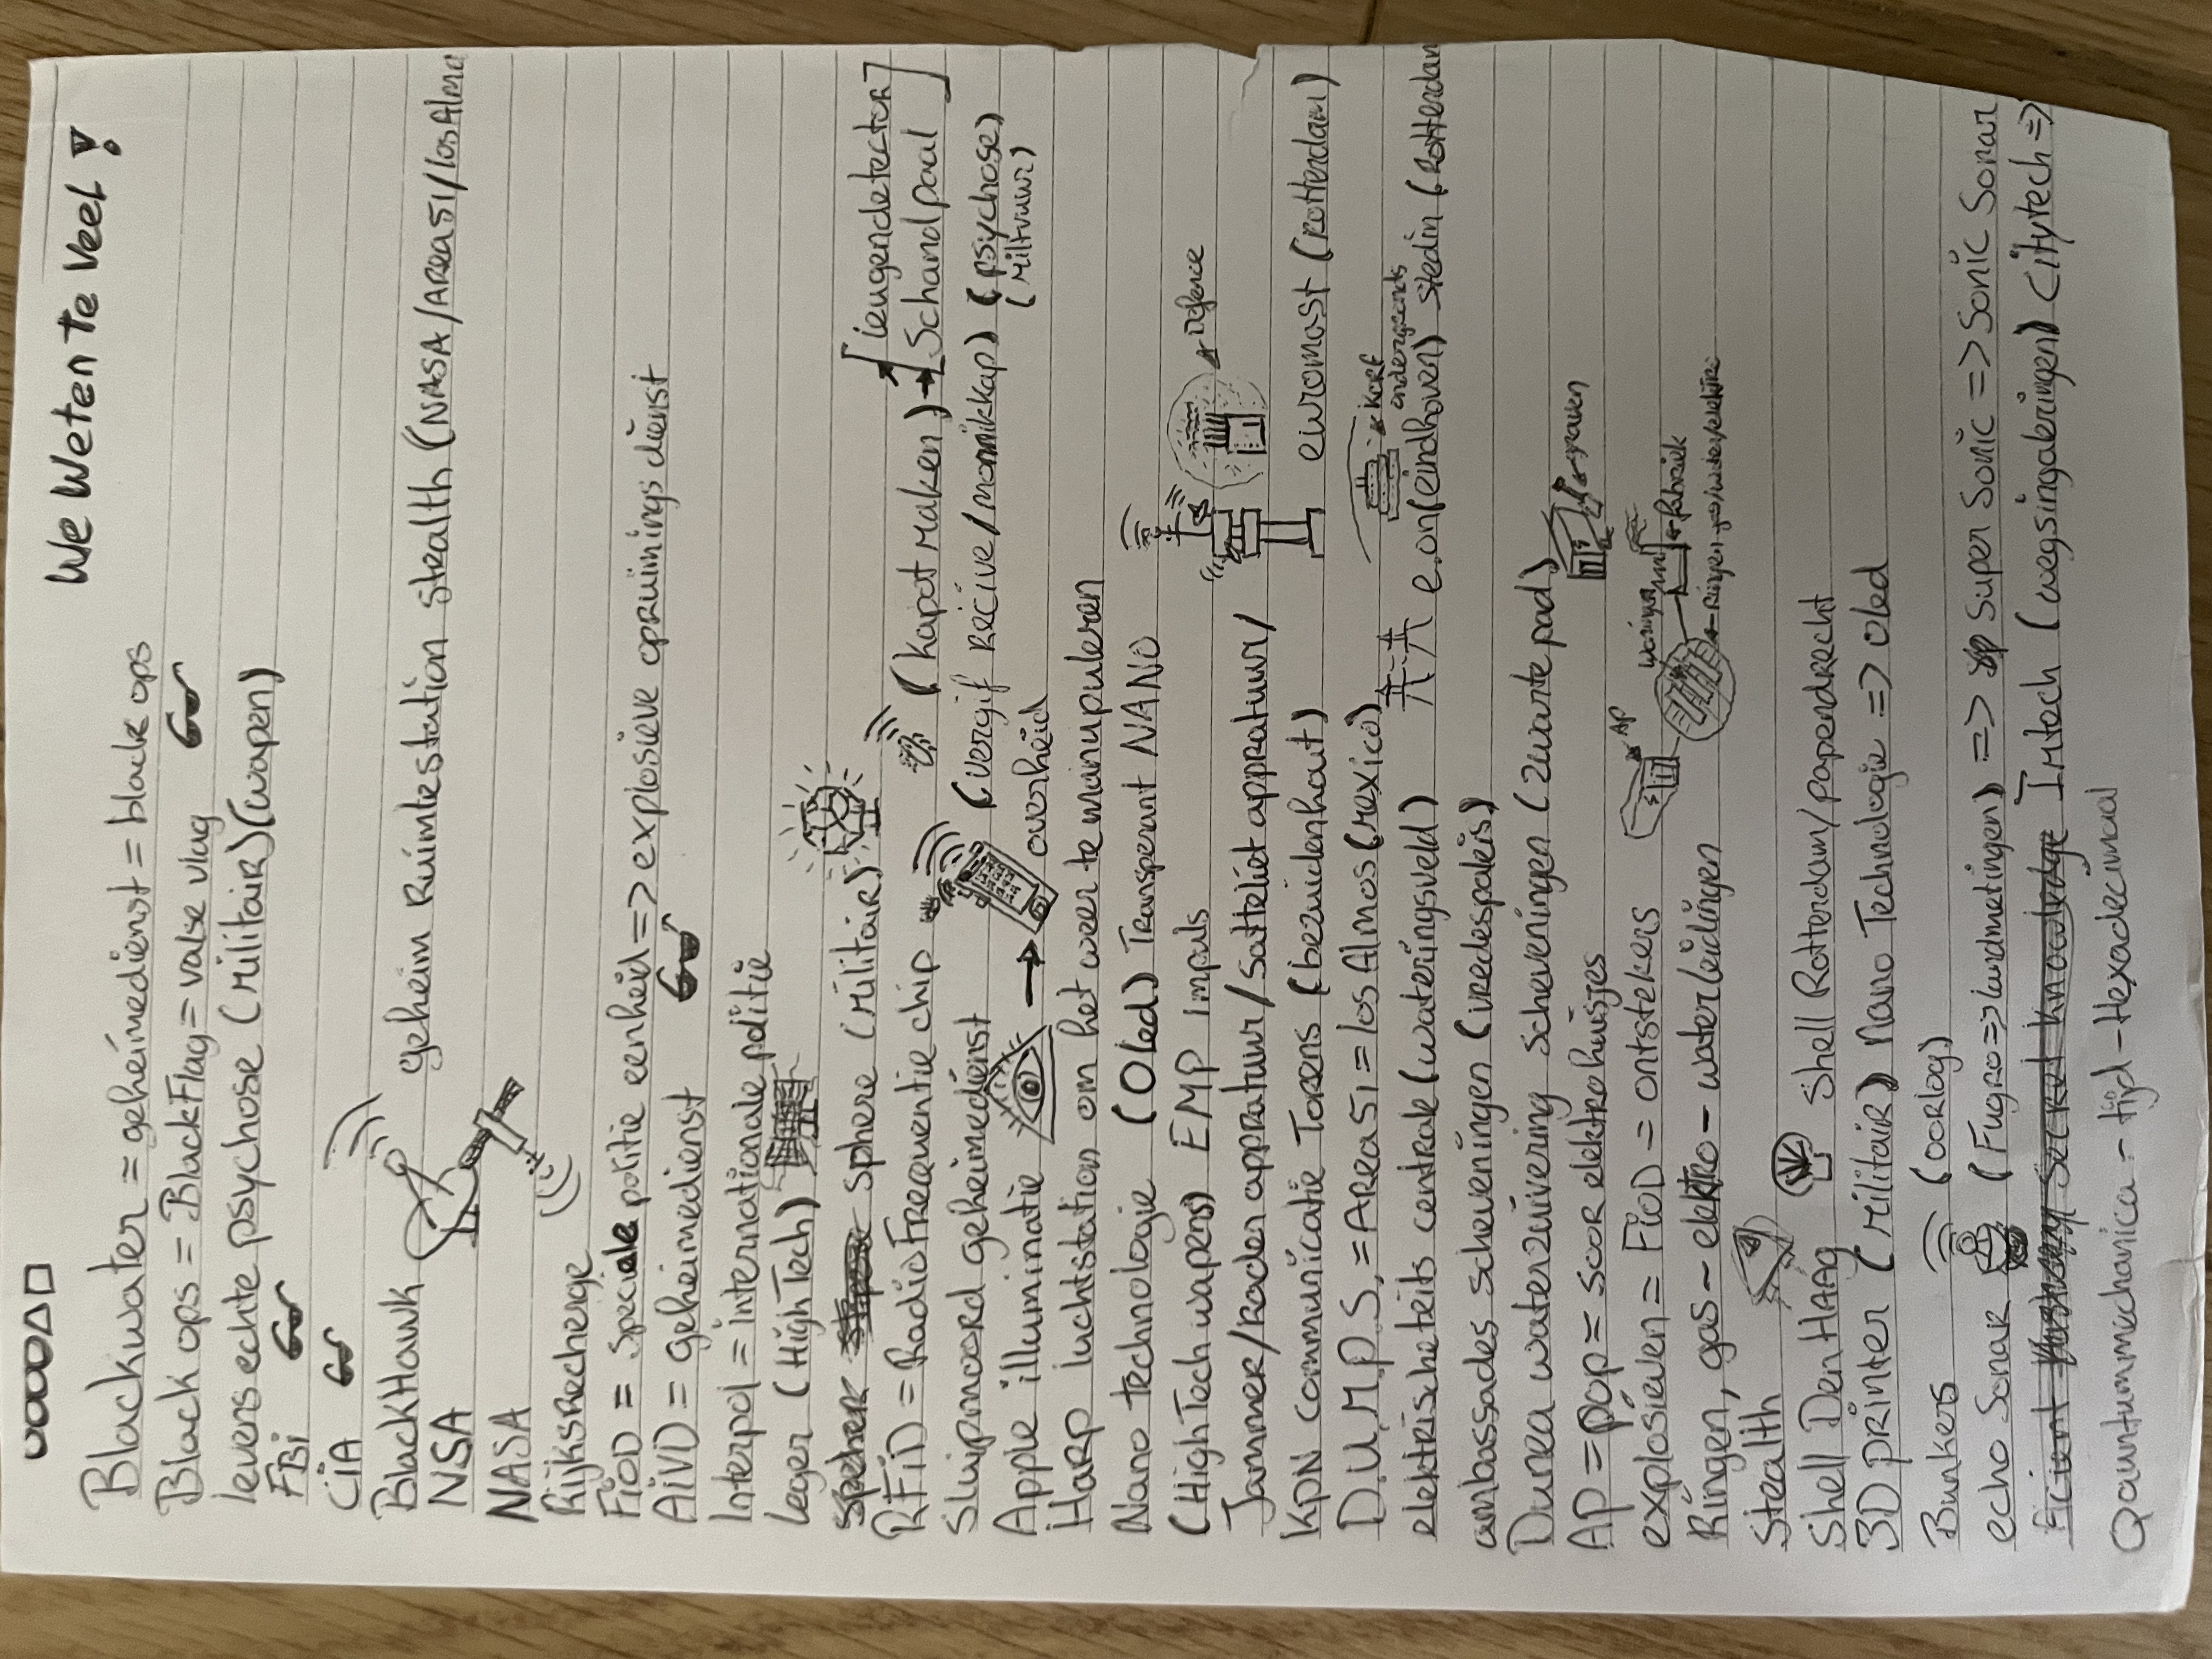 We Weten te Veel!
Blackwater = geheimedienst = black ops
Black ops = BlackFlag = valse vlag
levensechte psychose (Militair) (wapen)
FBi
CiA
BlackHawk geheim Ruimtestation Stealth (NASA/AREA51/losAlmo
NSA
NASA
Rijksrecherge
FioD = Speciale politie eenheid => explosieve opruimings dienst
AiViD = geheimedienst
Interpol = internationale politie
leger (HighTech)
sphere (Militair)
RFiD = RadioFrequentie chip (kapot Maken) → [leugendetector]
[Schandpaal]
Sluipmoord geheimedienst (Vergif Recive/monnikkap) (psychose)
(Miltvuur)
Apple illuminatie → overheid
Harp luchtstation om het weer te manupuleren
Nano technologie (Oled) Transperant NANO
(HighTech wapens) EMP impuls
Defence
Jammer/Rader appratuur/Satteliet appratuur/ euromast (Rotterdam)
KPN Communicatie Torens (bezuidenhout)
D.U.M.P.S. = AREA51 = los Almos (Mexico)
KORF
ondergronds
elektriciteits centrale (wateringsveld) e.on (eindhoven) Stedin (Rotterdam
ambassades scheveningen (vredespaleis)
Dunea waterzuivering scheveningen (zwarte pad)
graven
AP = pop = Scor elektrohuisjes
AP
woningen
fabriek
explosieven = FioD = ontstekers
Ringen, gas-elektro-waterleidingen
Stealth
Shell Den HAAg Shell Rotterdam/papendrecht
3D printer (Militair) Nano Technologie => Oled
Bunkers (oorlog)
echo Sonar (Fugro => landmetingen) => Super Sonic => Sonic Sonar
Imtech (wegsingaliringen) Citytech =>
Qauntummechanica - tijd - Hexadecimaal